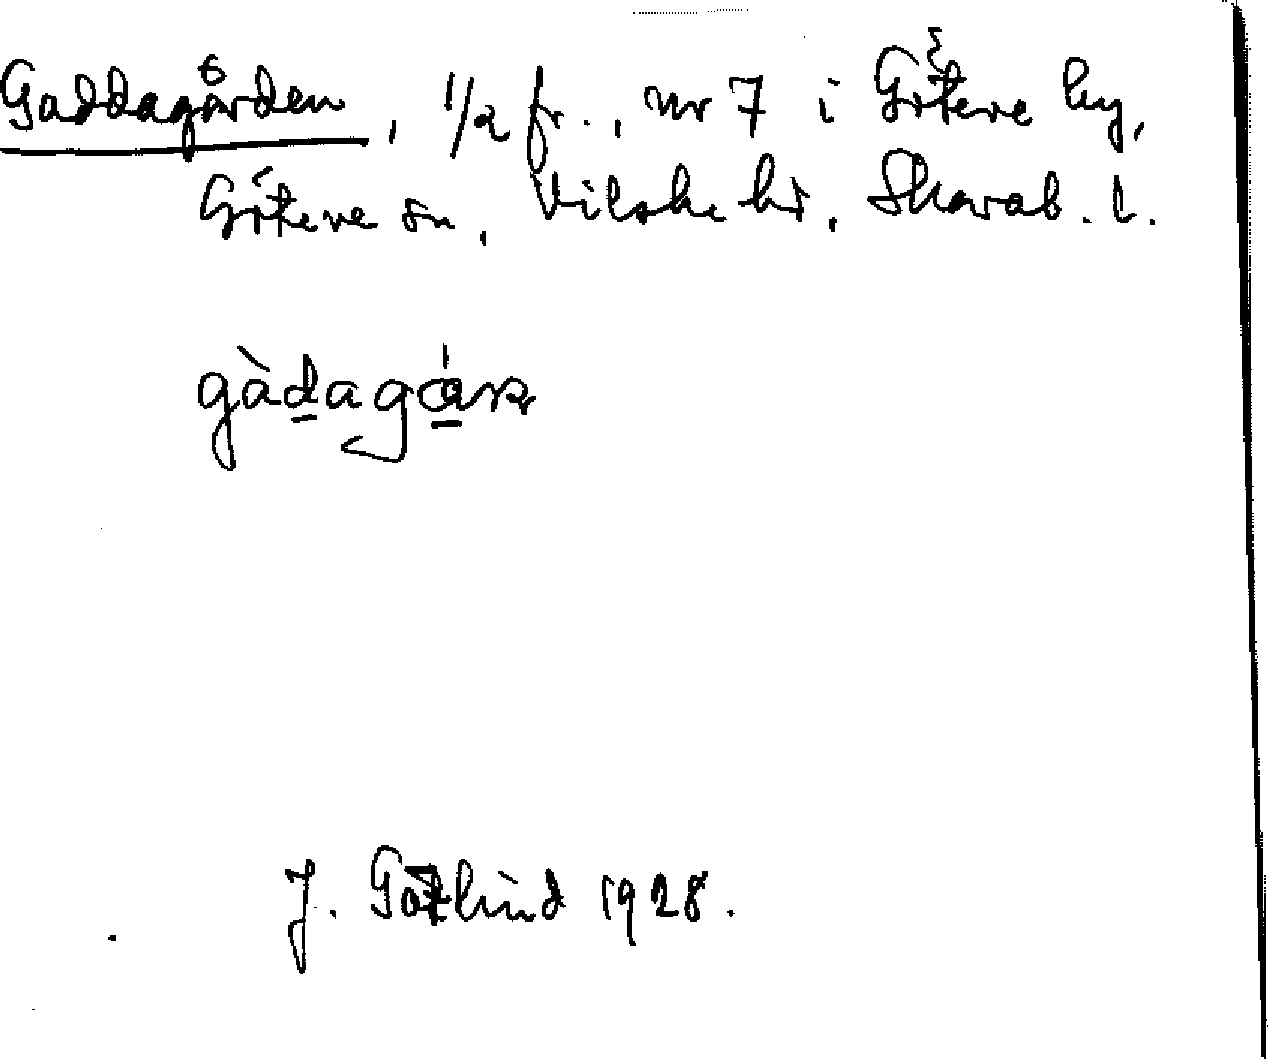 Gaddagården, 1/2 fr., nr 7 i Göteve by,
Göteve sn, Vilske hd, Skarab. l.
gàdagá
J. Götlind 1928.